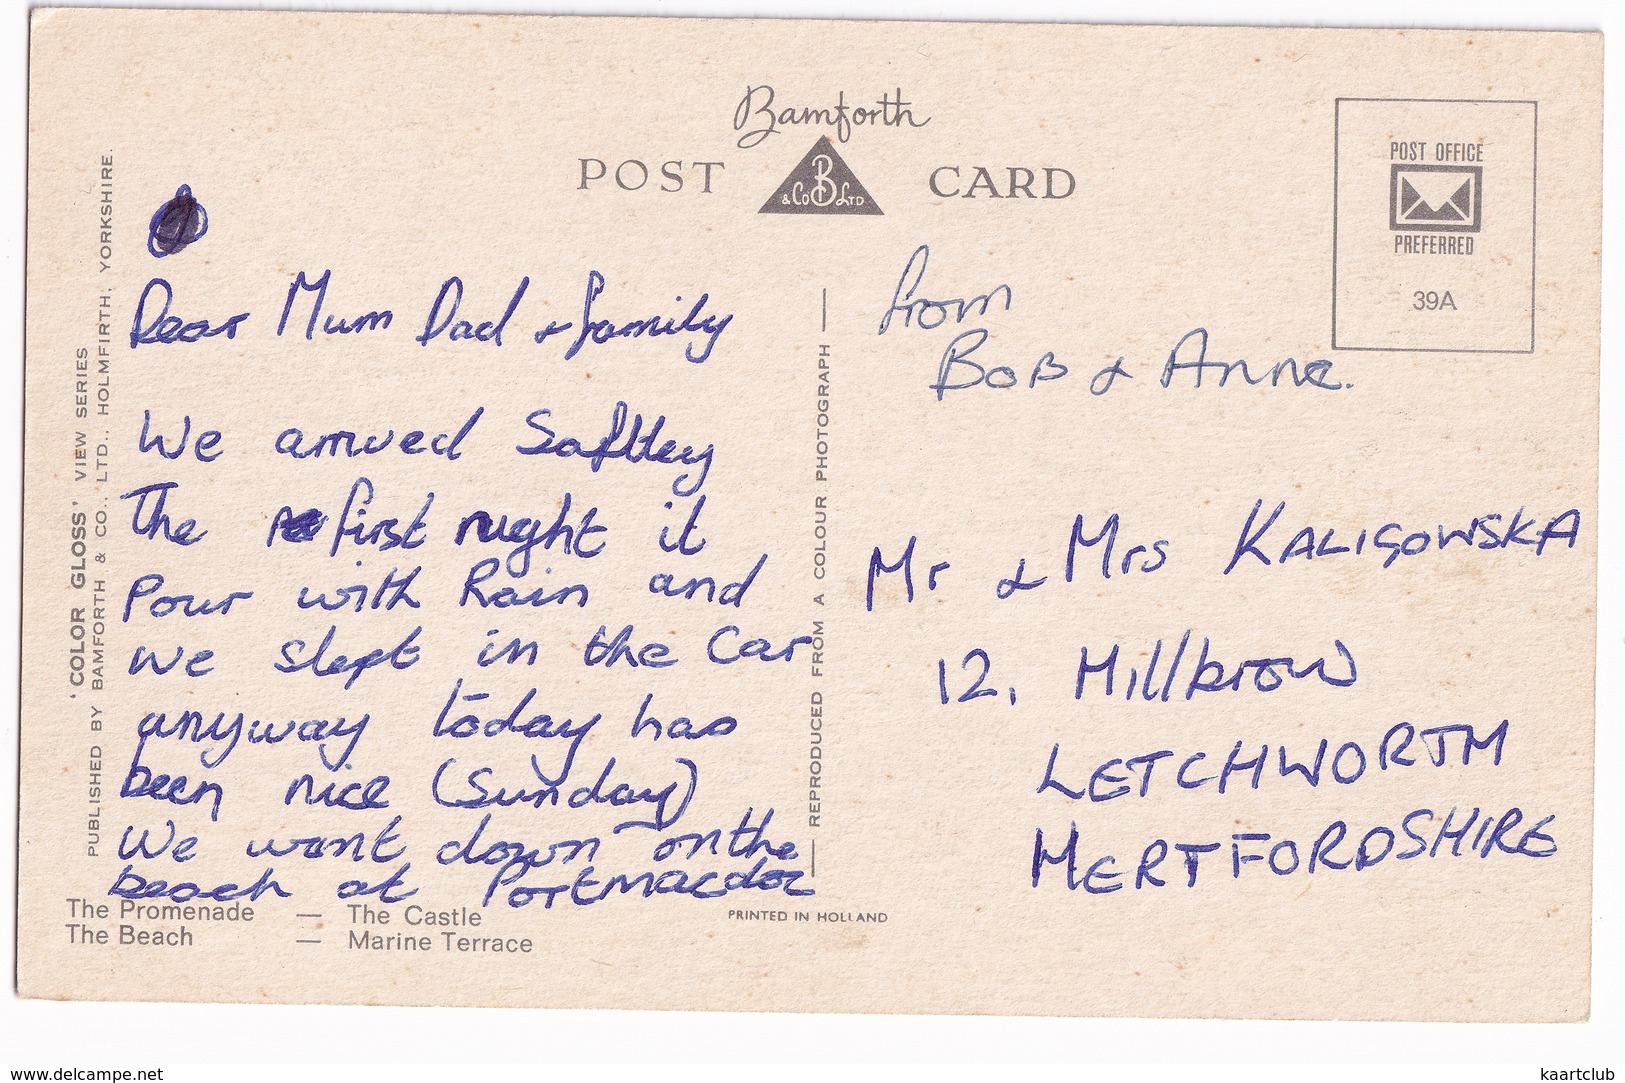 Bamforth
POST CARD
B
& Co LTD
POST OFFICE
PREFERRED
39A
'COLOR GLOSS' VIEW SERIES
PUBLISHED BY BAMFORTH & CO., LTD., HOLMFIRTH, YORKSHIRE.
Dear Mum Dad & family
We arrived Saftley
The first night it
Pour with Rain and
we slept in the Car
anyway today has
been nice (Sunday)
We went down on the
beach at Portmacdoc
The Promenade — The Castle
The Beach — Marine Terrace
REPRODUCED FROM A COLOUR PHOTOGRAPH
PRINTED IN HOLLAND
from
BoB & Anne.
Mr & Mrs KALIGOWSKA
12, Millbrow
LETCHWORTH
HERTFORDSHIRE
www.delcampe.net
kaartclub